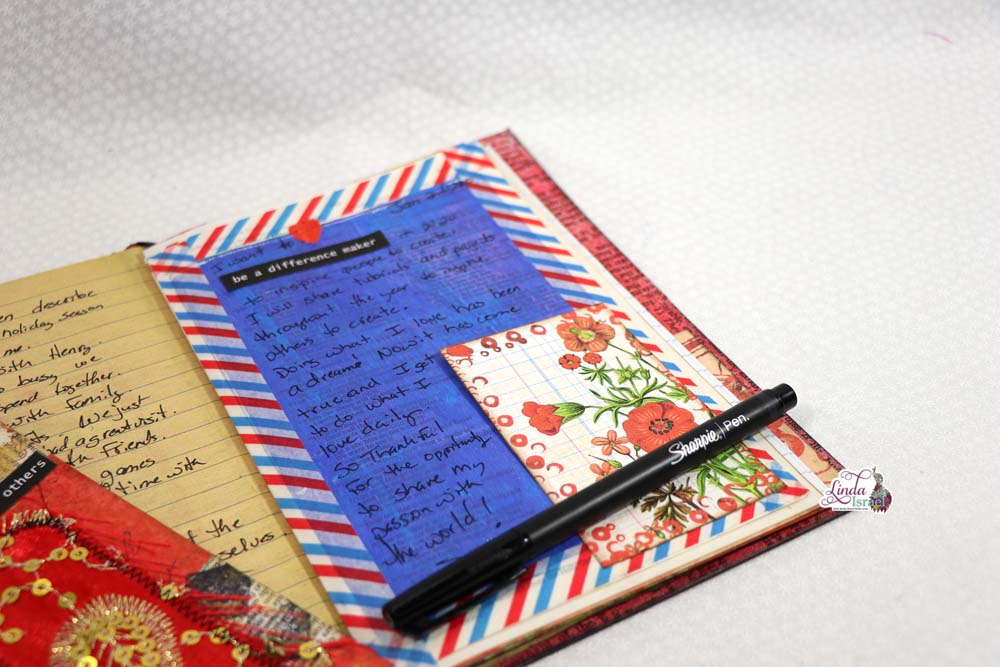 en describe
holiday season
me.
with Henry.
busy we
spend together.
with family
we just
had a great visit.
with Friends.
games
time with
the
selves.
others
Jan
I want to in 2020
be a difference maker
to inspire people to create.
I will share tutorials and projects
throughout the year to inspire
others to create.
Doing what I love has been
a dream! Now it has come
true and I get
to do what I
love daily.
So Thankful
for the opportunity
to share my
passion with
the world!
Sharpie Pen.
Linda
Israel